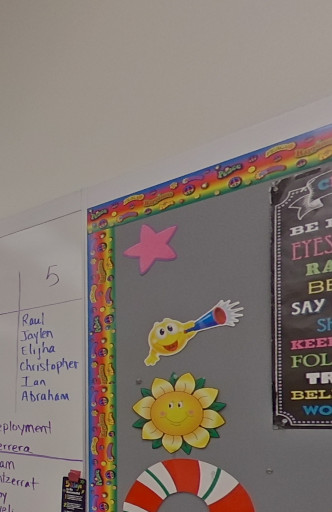 5
Raul
Jaylen
Elijha
Christopher
Ian
Abraham
eployment
errera
am
ntzerrat
oy
BE
EYES
RA
BE
SAY
SH
KEEP
FOL
TR
BEL
WO